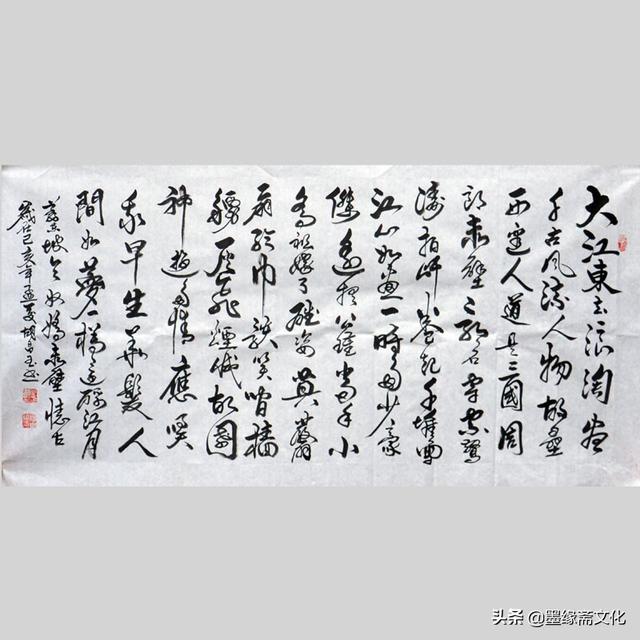 大江東去浪淘盡
千古風流人物故壘
西邊人道是三國周
郎赤壁亂石穿空驚
濤拍岸捲起千堆雪
江山如畫一時多少豪
傑遙想公瑾當年小
喬初嫁了雄姿英發羽
扇綸巾談笑間檣
艣灰飛煙滅故國
神遊多情應笑
我早生華髮人
間如夢一樽還酹江月
蘇東坡念奴嬌赤壁懷古
歲在己亥年孟夏胡
头条 @墨缘斋文化